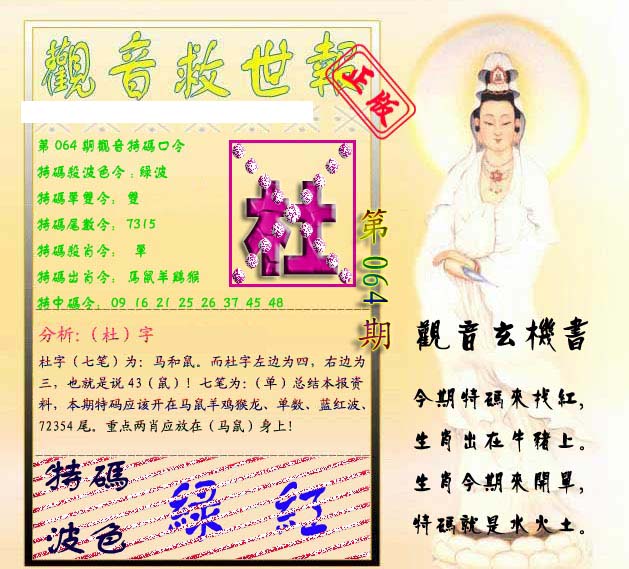 觀音救世報
正版
第 064 期觀音特碼口令
特碼殺波色令:綠波
特碼單雙令: 雙
特碼尾數令: 7315
特碼殺肖令: 單
特碼出肖令: 馬鼠羊鷄猴
特中碼令: 09 16 21 25 26 37 45 48
杜
第 064 期
分析:(杜)字
杜字(七笔)为:马和鼠。而杜字左边为四,右边为
三,也就是说 43(鼠)!七笔为:(单)总结本报资
料,本期特码应该开在马鼠羊鸡猴龙、单数、蓝红波、
72354 尾。重点两肖应放在(马鼠)身上!
特碼
波色
綠 紅
觀音玄機書
今期特碼來找紅,
生肖出在牛豬上。
生肖今期來開單,
特碼就是水火土。